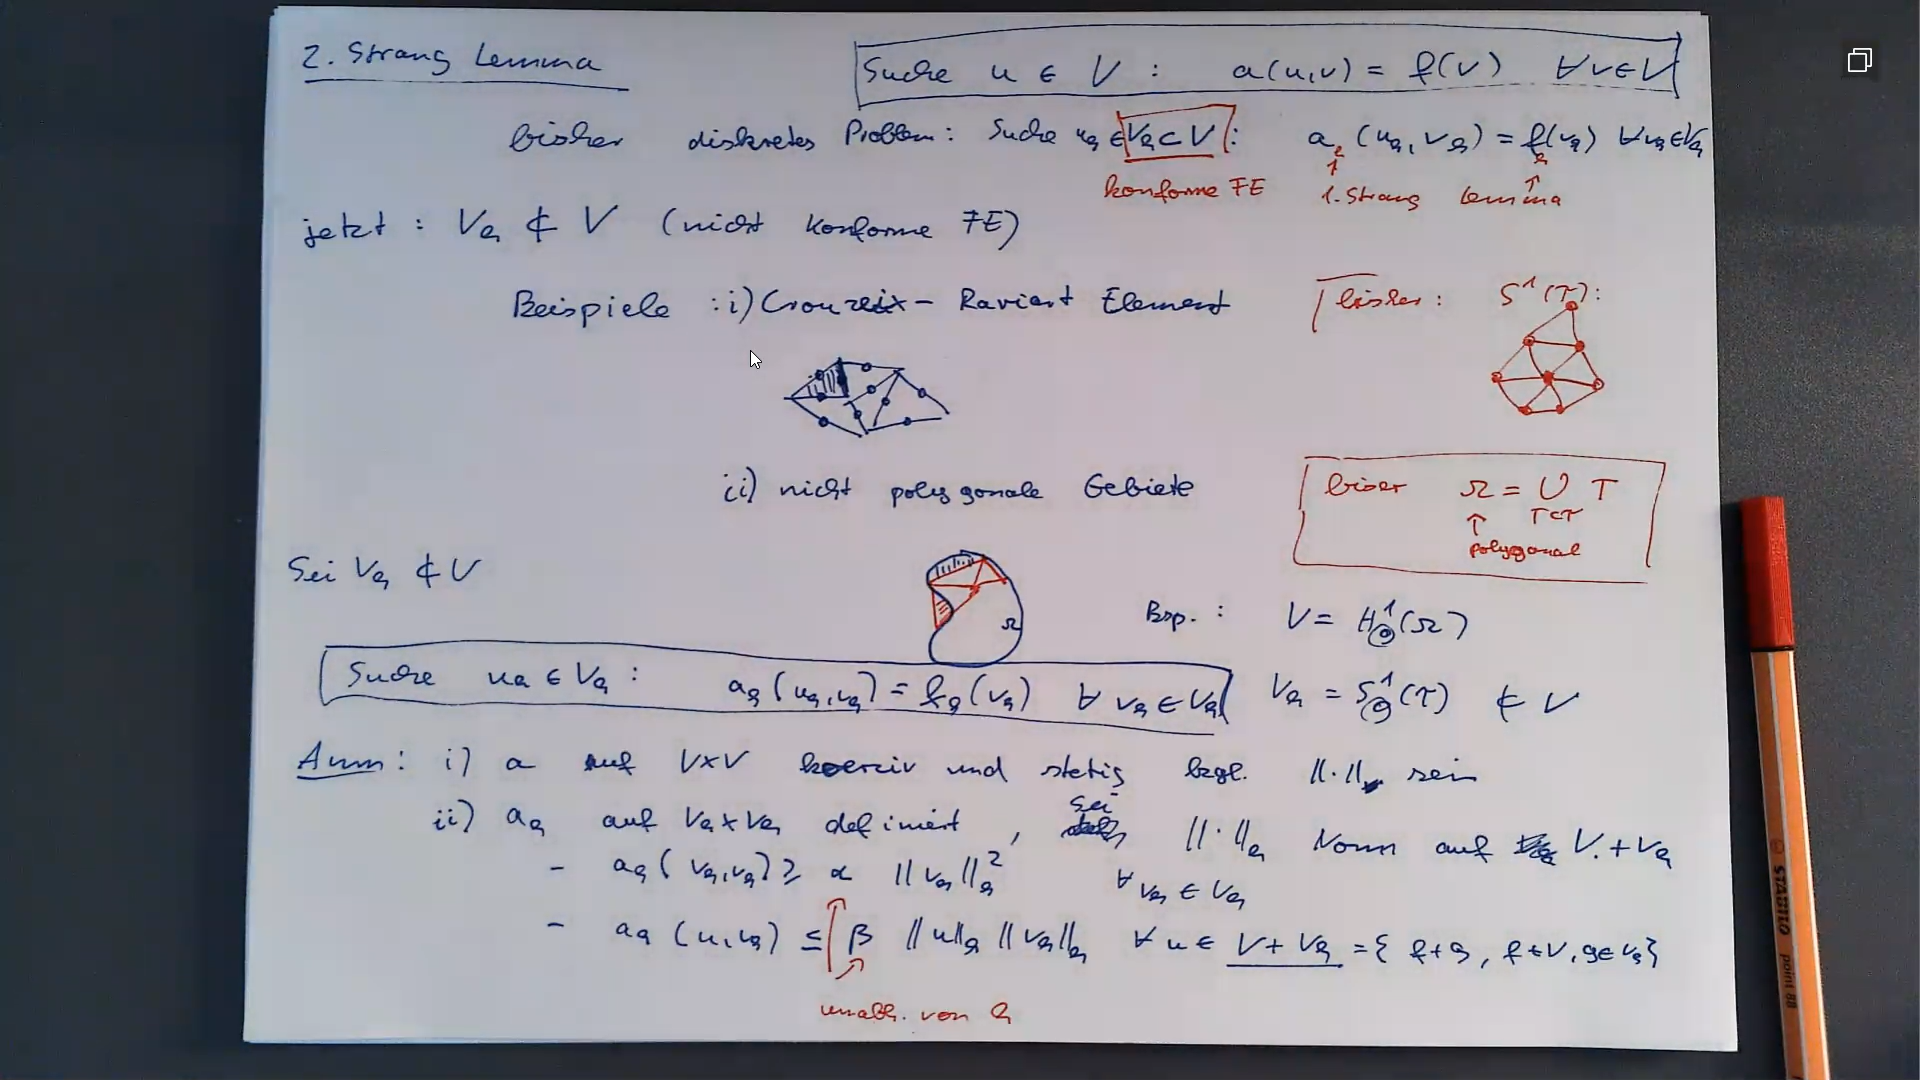 2. Strang Lemma
Suche u ∈ V : a(u,v) = f(v) ∀v∈V
bisher diskretes Problem: Suche u_h ∈ V_h ⊂ V : a_h(u_h, v_h) = f_h(v_h) ∀v_h∈V_h
konforme FE
1. Strang Lemma
jetzt : V_h ⊄ V (nicht konforme FE)
Beispiele : i) Crouzeix - Raviart Element
bisher : S^1(T):
ii) nicht polygonale Gebiete
biser Ω = ∪ T
T∈T
polygonal
Sei V_h ⊄ V
Ω
Bsp. : V = H^1_0(Ω)
Suche u_h ∈ V_h : a_h(u_h,v_h) = f_h(v_h) ∀ v_h ∈ V_h
V_h = S^1_0(T) ⊄ V
Ann : i) a auf V×V koerziv und stetig bzgl. ||·||_V sein
ii) a_h auf V_h×V_h definiert , sei ||·||_h Norm auf V+V_h
- a_h(v_h,v_h) ≥ α ||v_h||_h^2 ∀ v_h ∈ V_h
- a_h(u,v_h) ≤ β ||u||_h ||v_h||_h ∀ u ∈ V + V_h = { f+g , f∈V, g∈V_h}
unabh. von h
STABILO point 88